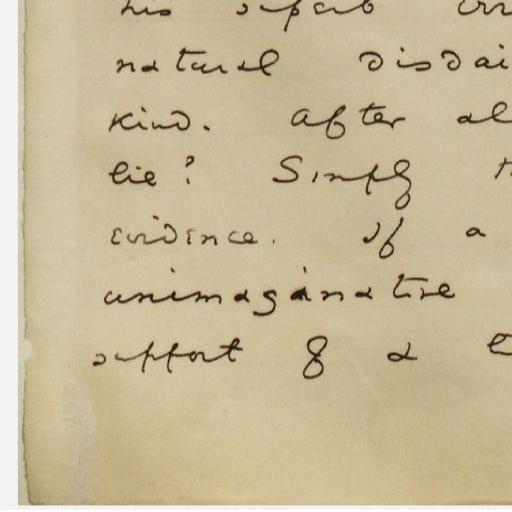 his superb
natural disdai
kind. After al
lie? Simply t
evidence. If a
unimaginative
support of a